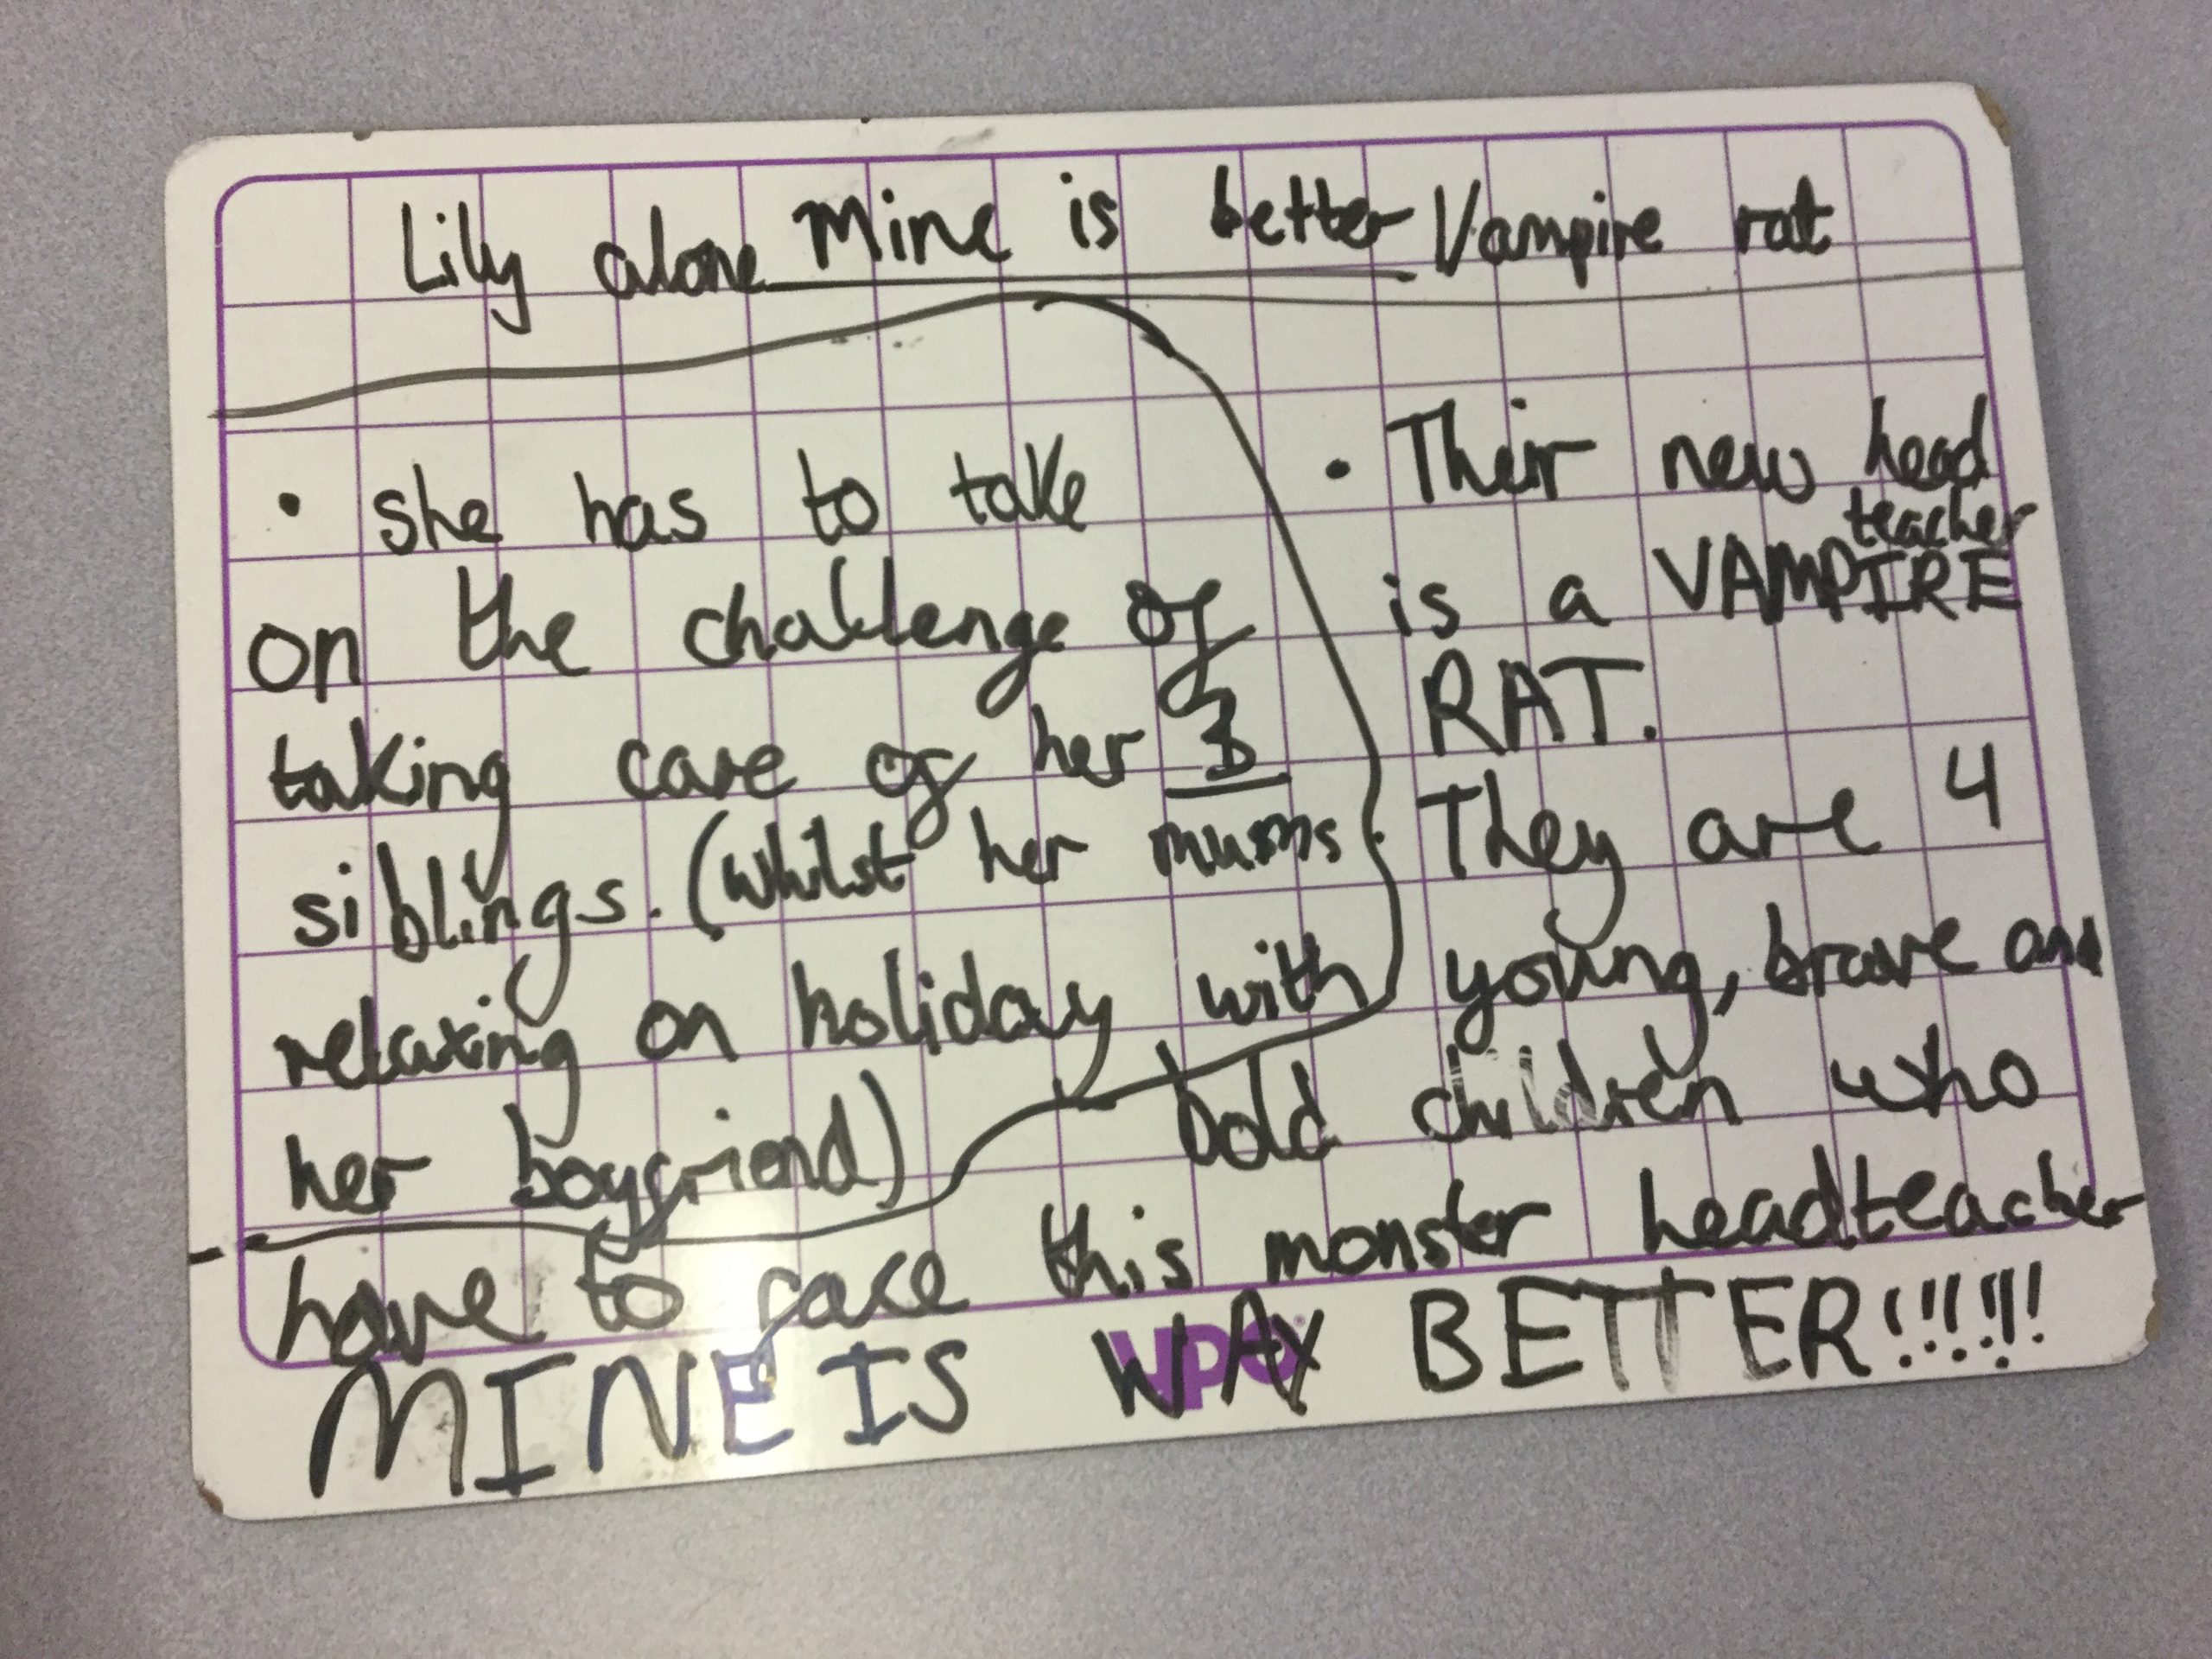 Lily alone Mine is better Vampire rat
• she has to take
on the challenge of
taking care of her 3
siblings. (whilst her mums
relaxing on holiday with
her boyfriend)
• Their new head
teacher
is a VAMPIRE
RAT.
• They are 4
young, brave and
bold children who
have to face this monster headteacher
MINE IS WAY BETTER!!!!!!